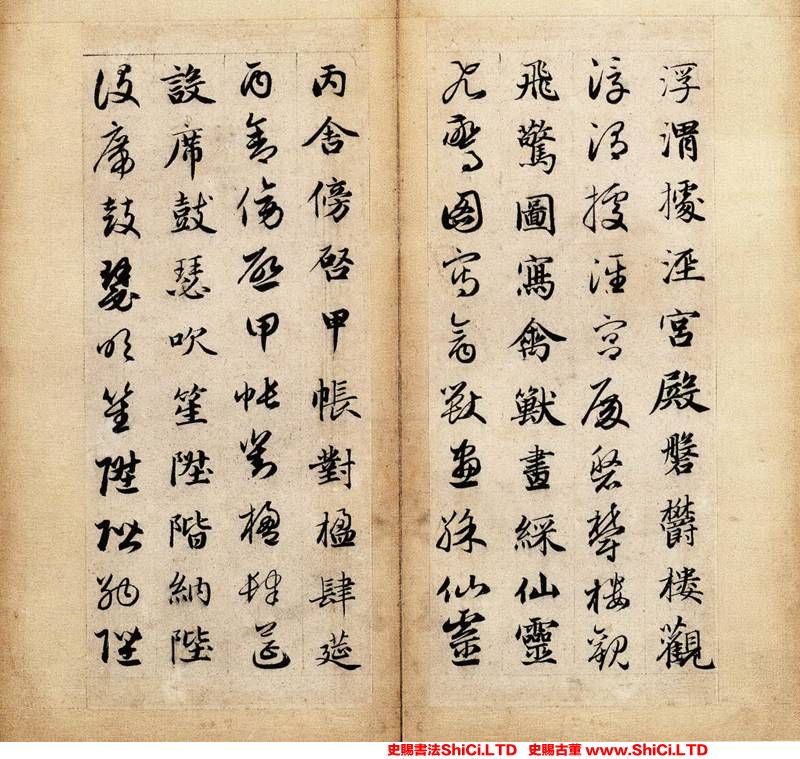 浮渭據涇宮殿磐鬱樓觀
浮渭據涇宮殿磐鬱樓觀
飛驚圖寫禽獸畫綵仙靈
飛驚圖寫禽獸畫綵仙靈
丙舍傍啓甲帳對楹肆筵
丙舍傍啓甲帳對楹肆筵
設席鼓瑟吹笙陞階納陛
設席鼓瑟吹笙陞階納陛
史賜書法ShiCi.LTD 史賜古董 www.ShiCi.LTD